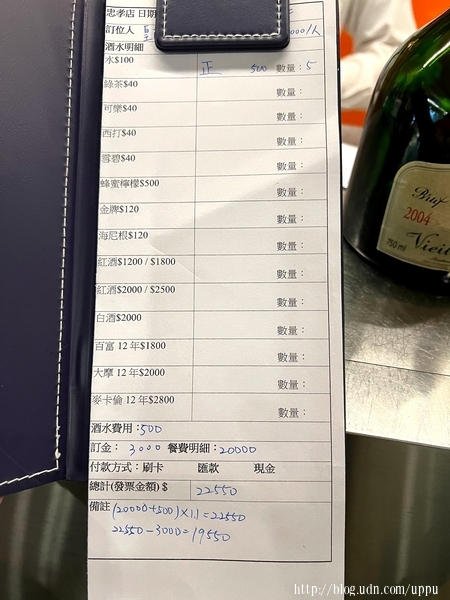 忠孝店 日期
訂位人
000/人
酒水明細
水$100 正 500 數量：5
綠茶$40 數量：
可樂$40 數量：
西打$40 數量：
雪碧$40 數量：
蜂蜜檸檬$500 數量：
金牌$120 數量：
海尼根$120 數量：
紅酒$1200 / $1800 數量：
紅酒$2000 / $2500 數量：
白酒$2000 數量：
百富 12 年$1800 數量：
大摩 12 年$2000 數量：
麥卡倫 12 年$2800 數量：
酒水費用：500
訂金： 3000 餐費明細：20000
付款方式：刷卡 匯款 現金
總計(發票金額) $ 22550
備註 (20000+500)×1.1=22550
22550-3000=19550
Brut
2004
750 ml
http://blog.udn.com/uppu